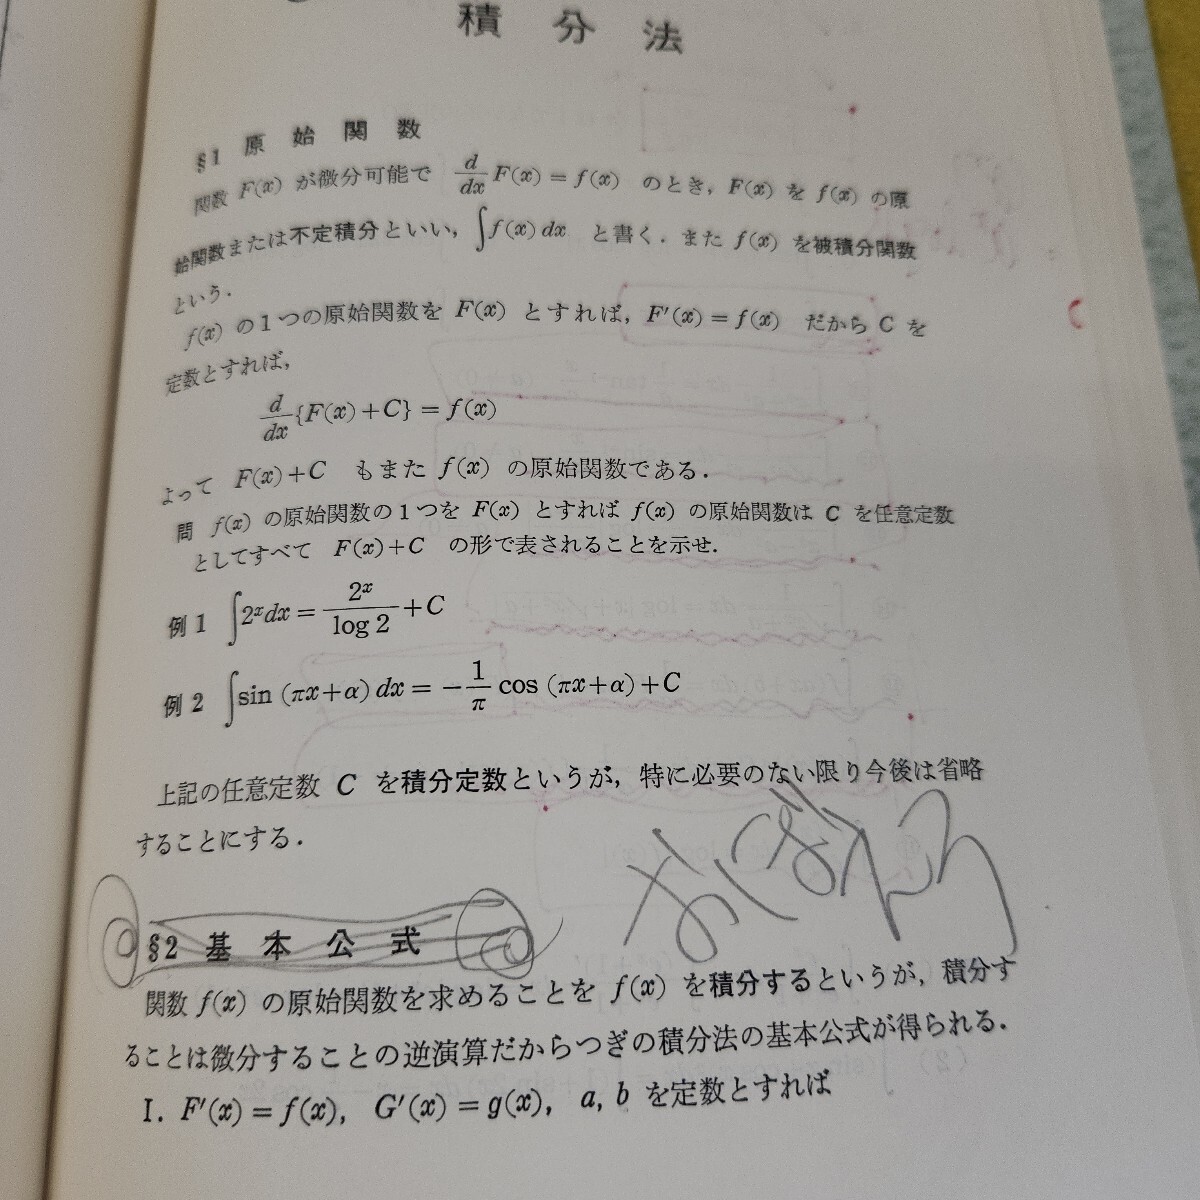 積分法
§1 原始関数
関数 F(x) が微分可能で d/dx F(x) = f(x) のとき, F(x) を f(x) の原
始関数または不定積分といい, ∫f(x) dx と書く. また f(x) を被積分関数
という.
f(x) の1つの原始関数を F(x) とすれば, F′(x) = f(x) だから C を
定数とすれば,
d/dx {F(x)+C} = f(x)
よって F(x)+C もまた f(x) の原始関数である.
問 f(x) の原始関数の1つを F(x) とすれば f(x) の原始関数は C を任意定数
としてすべて F(x)+C の形で表されることを示せ.
例1 ∫2ˣdx = 2ˣ/log 2 + C
例2 ∫sin (πx+α) dx = −1/π cos (πx+α)+C
上記の任意定数 C を積分定数というが, 特に必要のない限り今後は省略
することにする.
§2 基本公式
関数 f(x) の原始関数を求めることを f(x) を積分するというが, 積分す
ることは微分することの逆演算だからつぎの積分法の基本公式が得られる.
I. F′(x) = f(x), G′(x) = g(x), a, b を定数とすれば